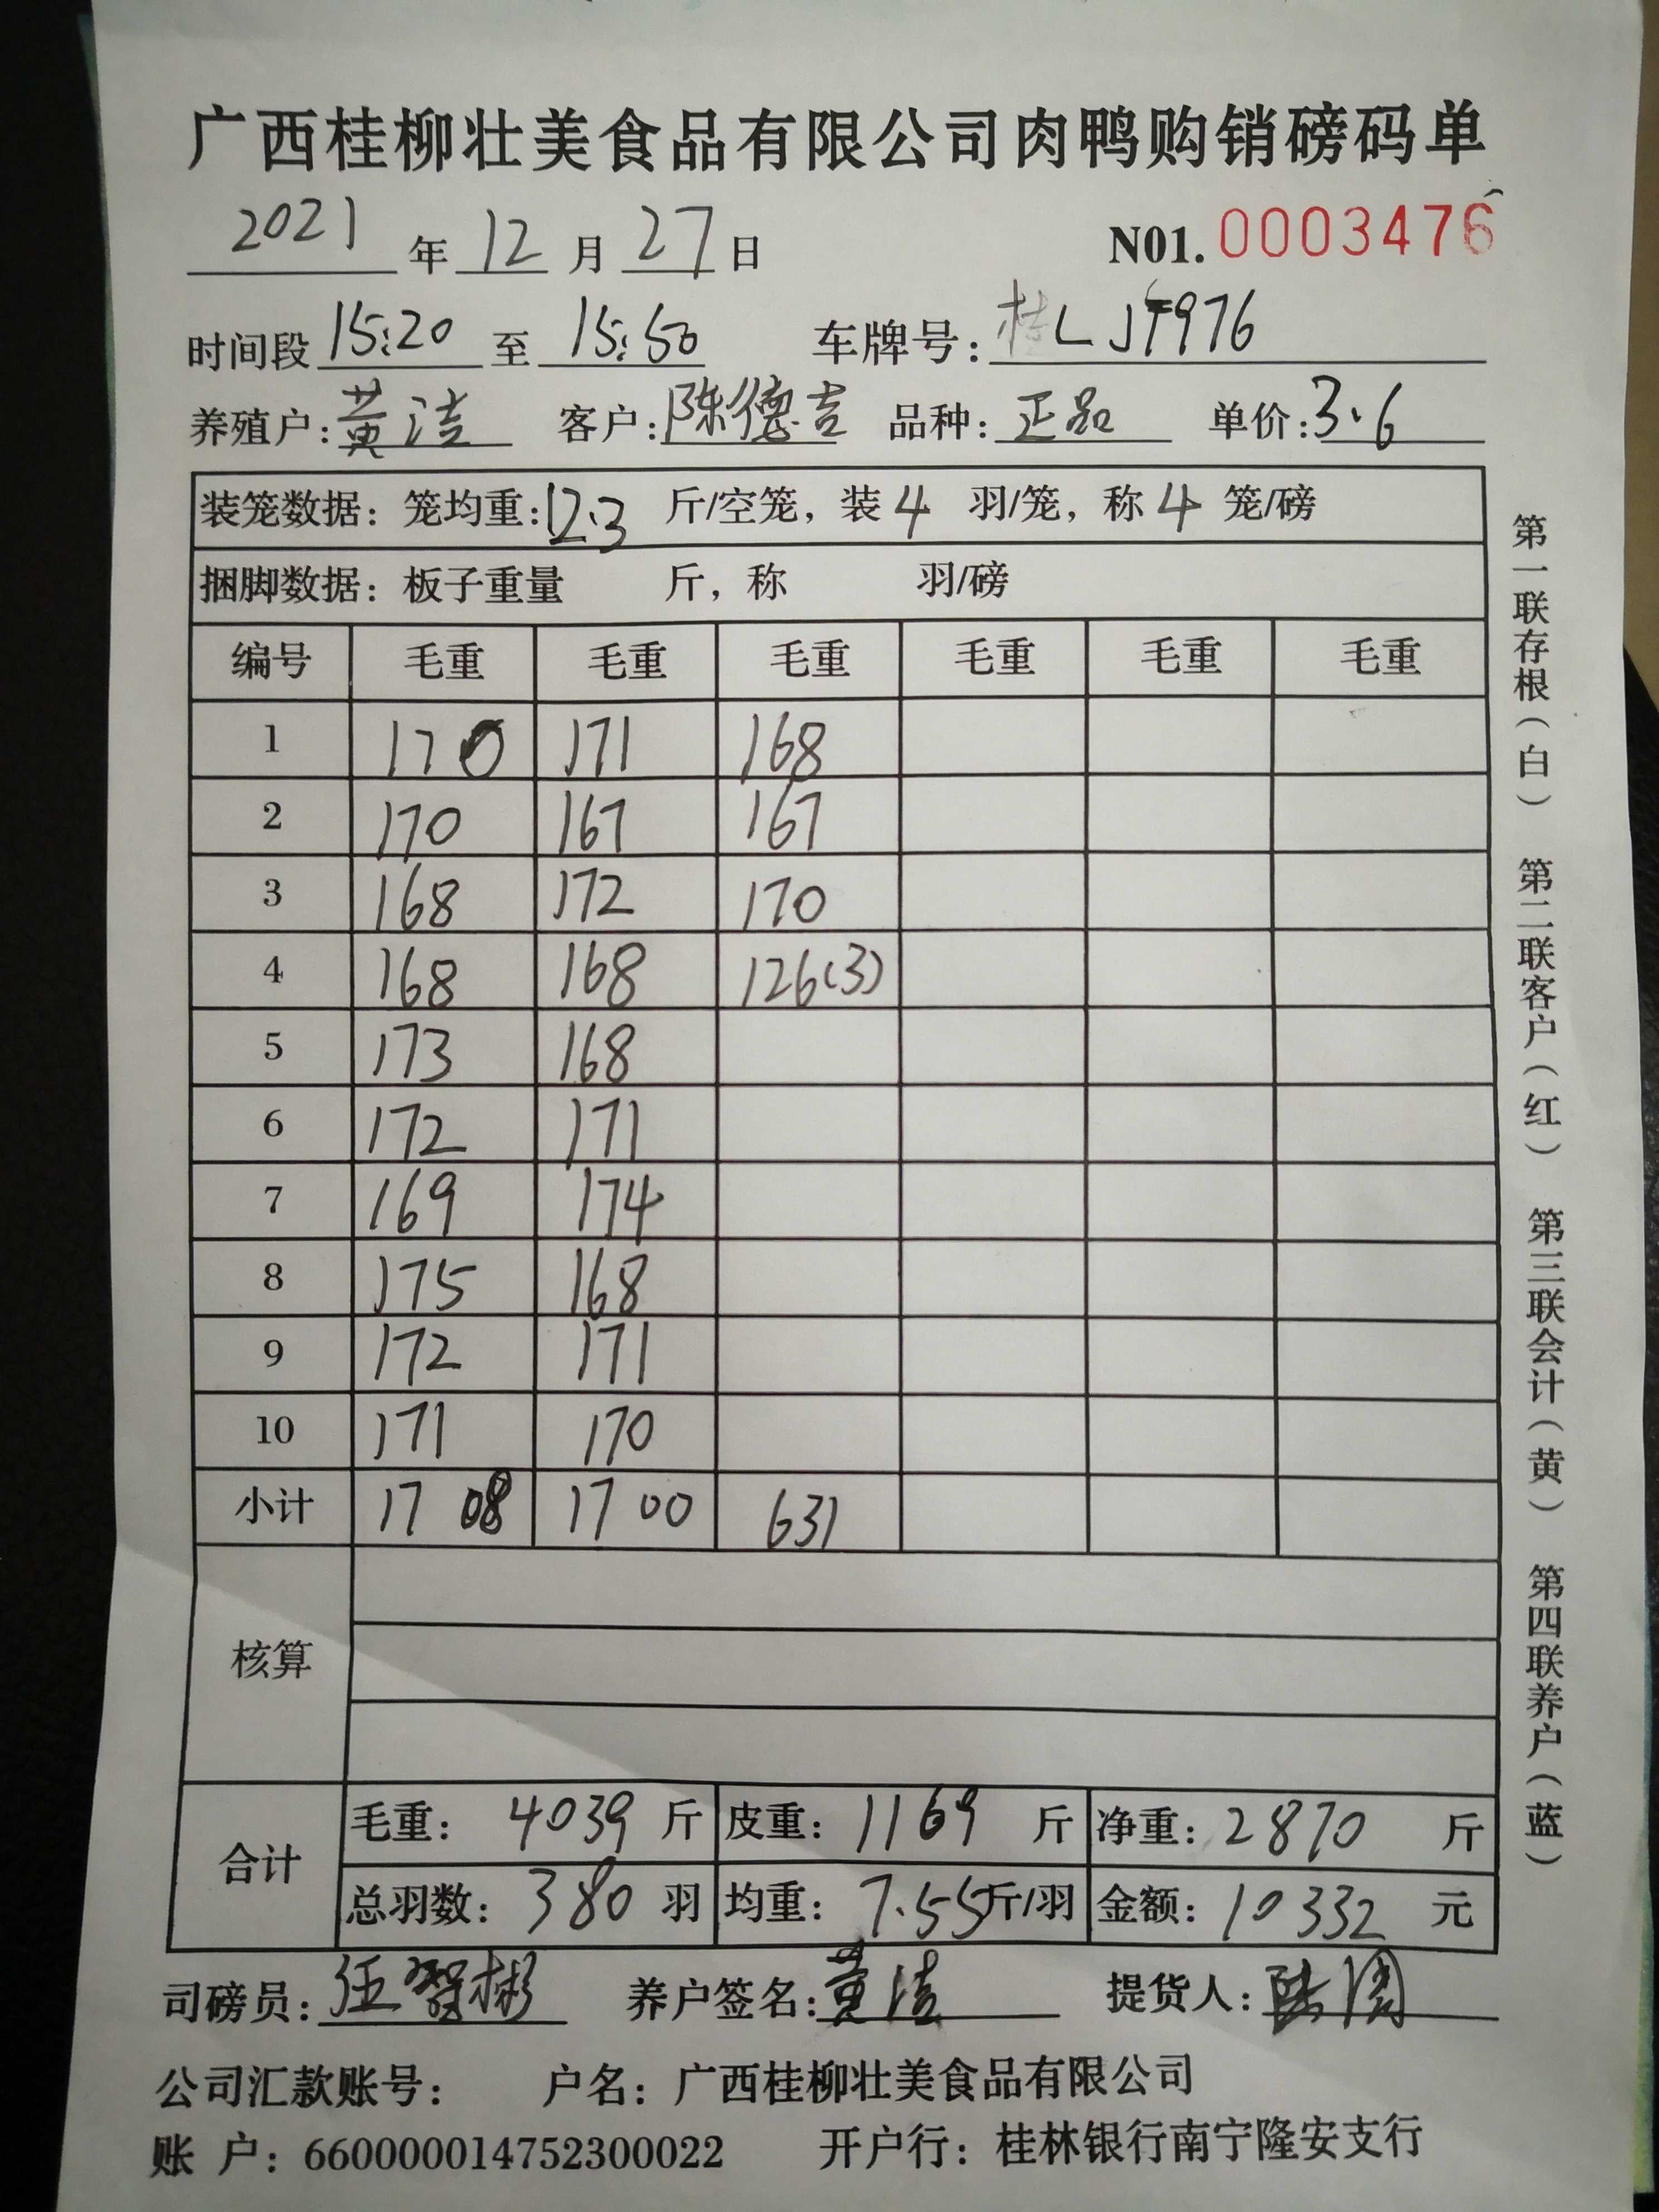 广西桂柳壮美食品有限公司肉鸭购销磅码单
2021 年 12 月 27 日 N01. 0003476
时间段 15:20 至 15:50 车牌号: 桂LJT976
养殖户: 黄洁 客户: 陈德吉 品种: 正品 单价: 3.6
装笼数据: 笼均重: 12.3 斤/空笼, 装 4 羽/笼, 称 4 笼/磅
捆脚数据: 板子重量 斤, 称 羽/磅
编号 毛重 毛重 毛重 毛重 毛重 毛重
1 170 171 168
2 170 167 167
3 168 172 170
4 168 168 126(3)
5 173 168
6 172 171
7 169 174
8 175 168
9 172 171
10 171 170
小计 1708 1700 631
核算
合计 毛重: 4039 斤 皮重: 1169 斤 净重: 2870 斤
总羽数: 380 羽 均重: 7.55 斤/羽 金额: 10332 元
司磅员: 伍智彬 养户签名: 黄洁 提货人:
公司汇款账号: 户名: 广西桂柳壮美食品有限公司
账 户: 660000014752300022 开户行: 桂林银行南宁隆安支行
第一联存根(白) 第二联客户(红) 第三联会计(黄) 第四联养户(蓝)